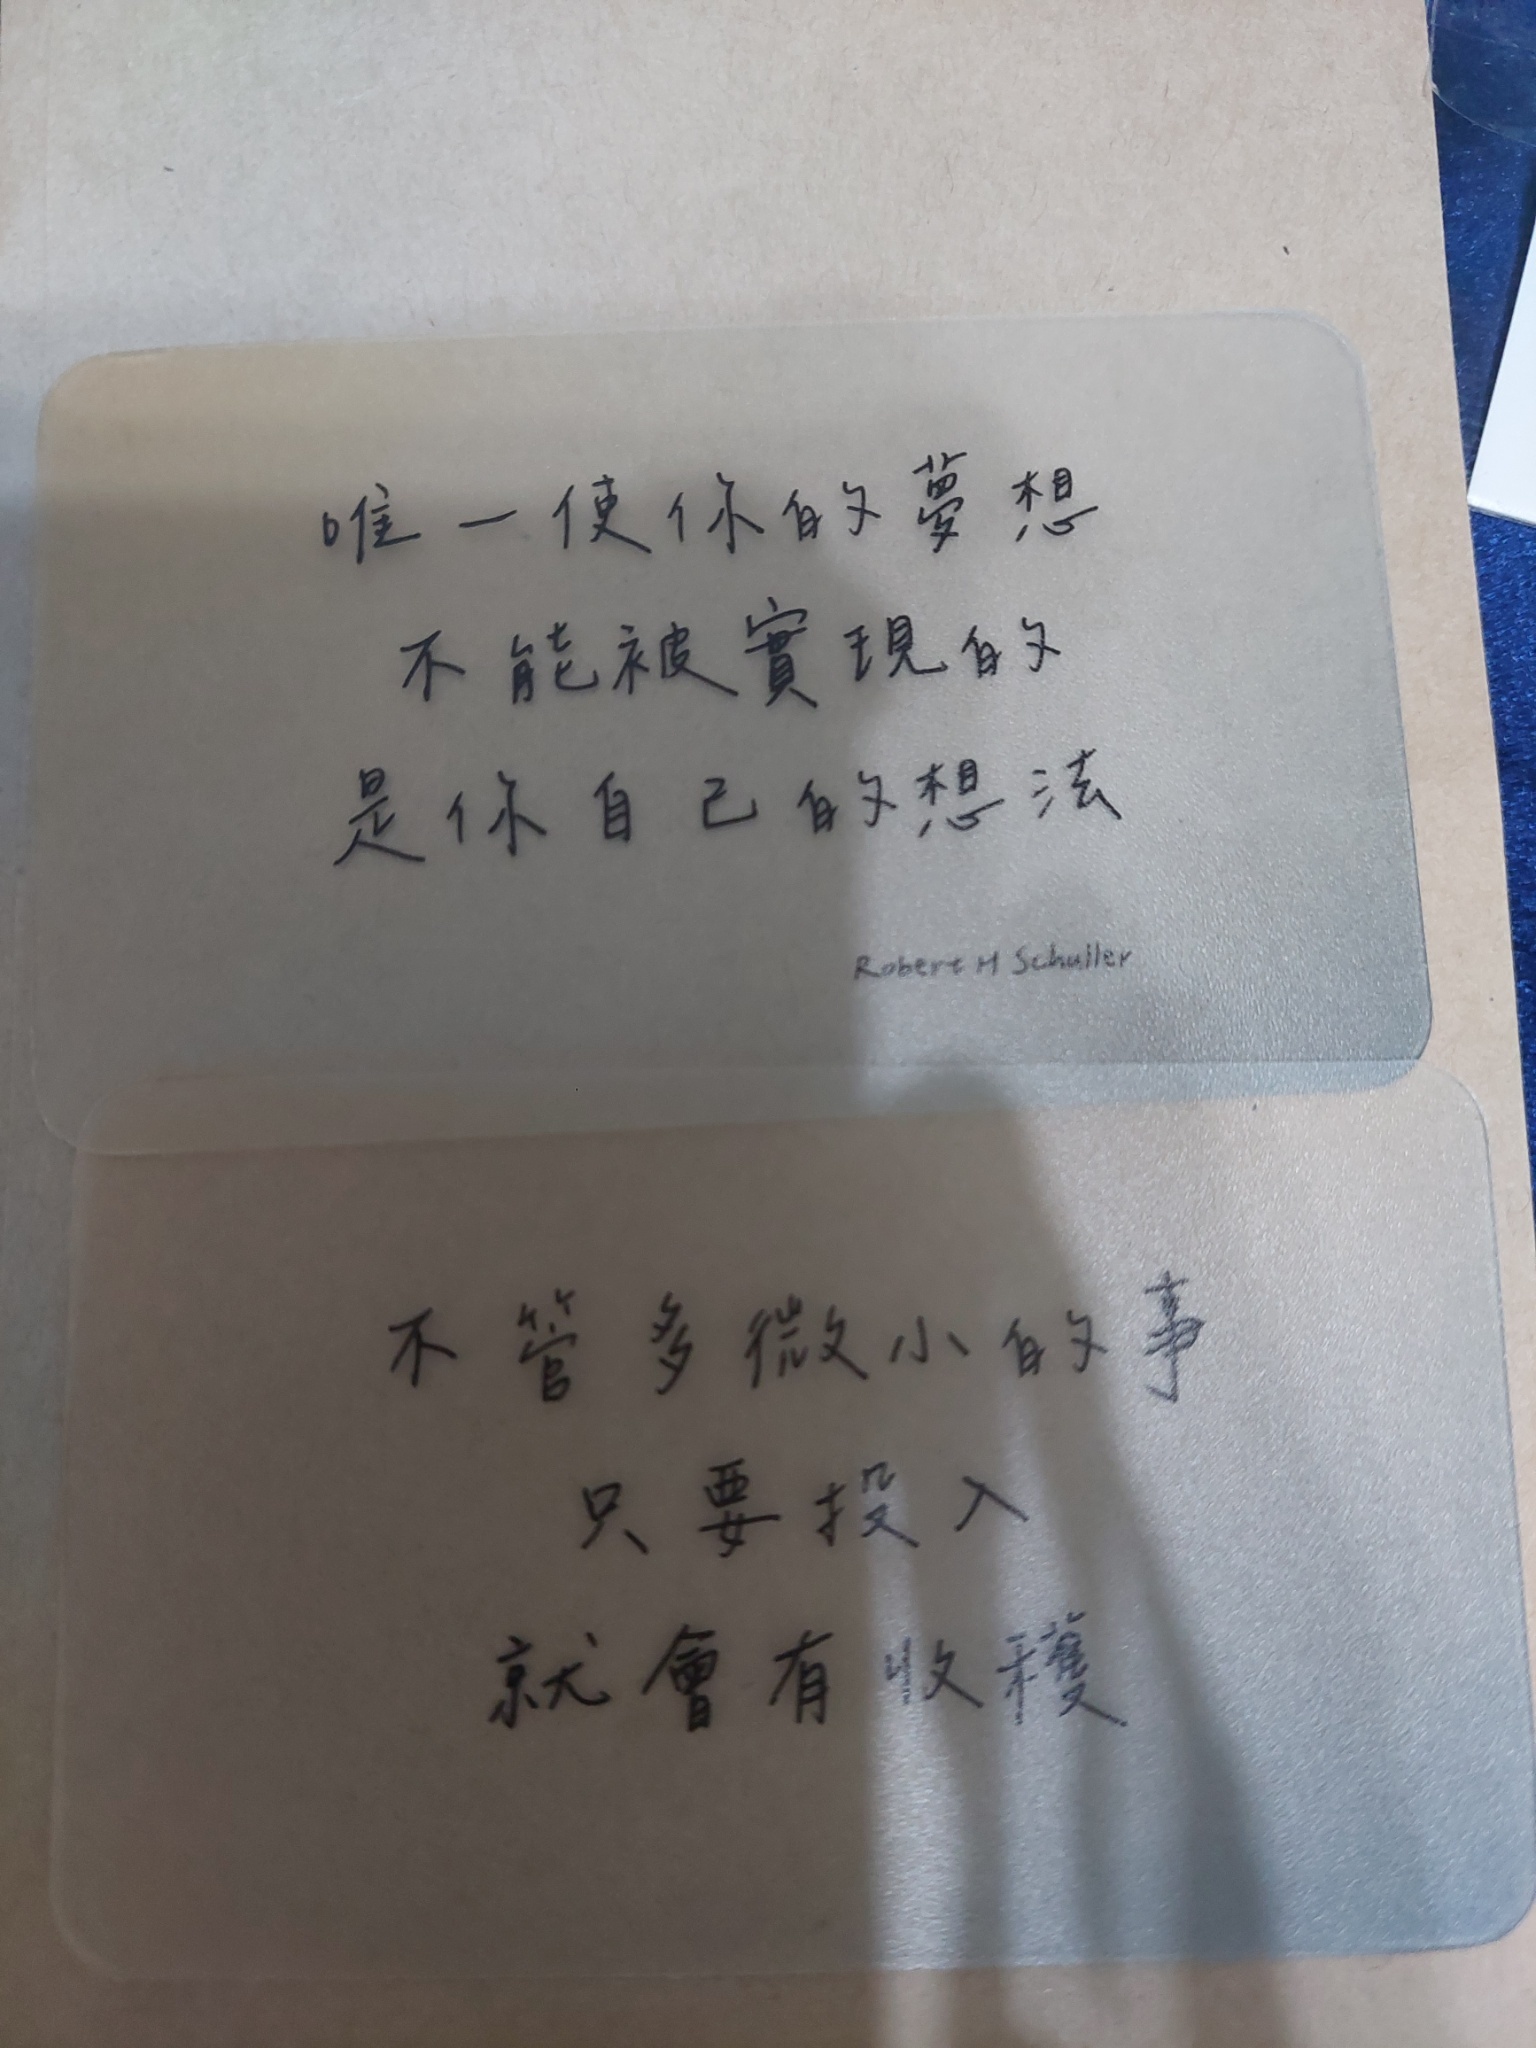 唯一使你的夢想
不能被實現的
是你自己的想法
Robert H Schuller
不管多微小的事
只要投入
就會有收穫